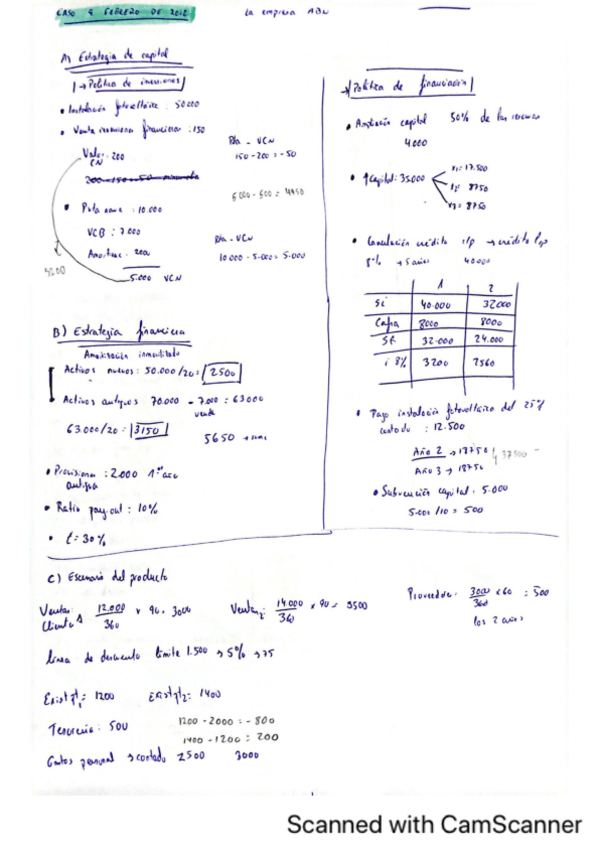 CASO 4 FEBRERO DE 2012
La empresa ABN
A) Estrategia de capital
1 → Política de inversiones
• Instalación fotovoltaica : 50.000
• Venta inversiones financieras : 150
Valor CN . 200
Pta - VCN
150 - 200 = - 50
5000 - 500 = 4450
• Pta nave : 10.000
VCB : 7.000
Amortizac . 2000
5.000 VCN
Pta - VCN
10.000 - 5.000 = 5.000
B) Estrategia financiera
Amortización inmovilizado
Activos nuevos : 50.000/20 = 2500
Activos antiguos : 70.000 - 7.000 = 63000
venta
63.000/20 = 3150
5650
• Provisiones : 2.000 1er año
antigua
• Ratio pay-out : 10%
• t = 30%
→ Política de financiación
• Ampliación capital 50% de las reservas
4000
• ↑ Capital : 35.000
17.500
8750
8750
• Cancelación crédito c/p → crédito l/p
8% → 5 años 40.000
1 2
Si 40.000 32000
Capta 8000 8000
SF 32.000 24.000
i 8% 3200 2560
• Pago instalación fotovoltaica del 25%
contado : 12.500
Año 2 → 18750
37500
Año 3 → 18750
• Subvención capital : 5.000
5.000/10 = 500
C) Escenario del producto
Ventas 12.000/360 x 90 . 3000
Clientes 1
Ventas 2 : 14.000/360 x 90 = 3500
Proveedor . 3000/360 x 60 : 500
los 2 años
línea de descuento límite 1.500 → 5% → 75
Exist 1 = 1200 Exist 2 : 1400
Tesorería : 500
1200 - 2000 = - 800
1400 - 1200 = 200
Gastos personal → contado 2500 3000
Scanned with CamScanner